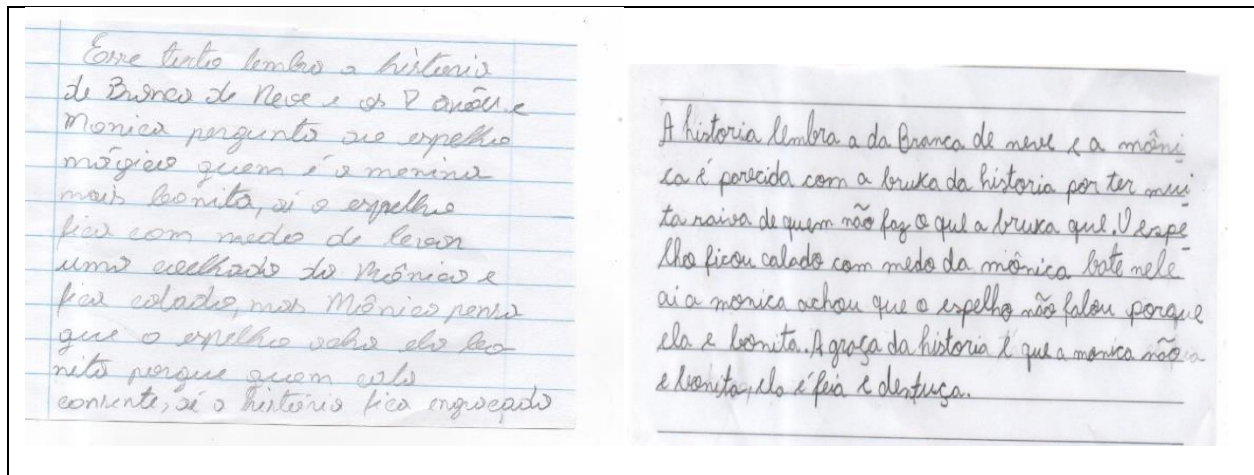 Esse texto lembra a historia
de Branca de Neve e os 7 anões e
Monica pergunta ao espelho
mágico quem é a menina
mais bonita, aí o espelho
fica com medo de levar
uma coelhada da Mônica e
fica calado, mas Mônica pensa
que o espelho acha ela bo-
nita porque quem cala
consente, aí a história fica engraçada
A historia lembra a da Branca de neve e a môni
ca é parecida com a bruxa da historia por ter mui
ta raiva de quem não faz o quel a bruxa quel. O espe
lho ficou calado com medo da mônica bate nele
ai a monica achou que o espelho não falou porque
ela e bonita. A graça da historia é que a monica não
e bonita, ela é feia e dentuça.